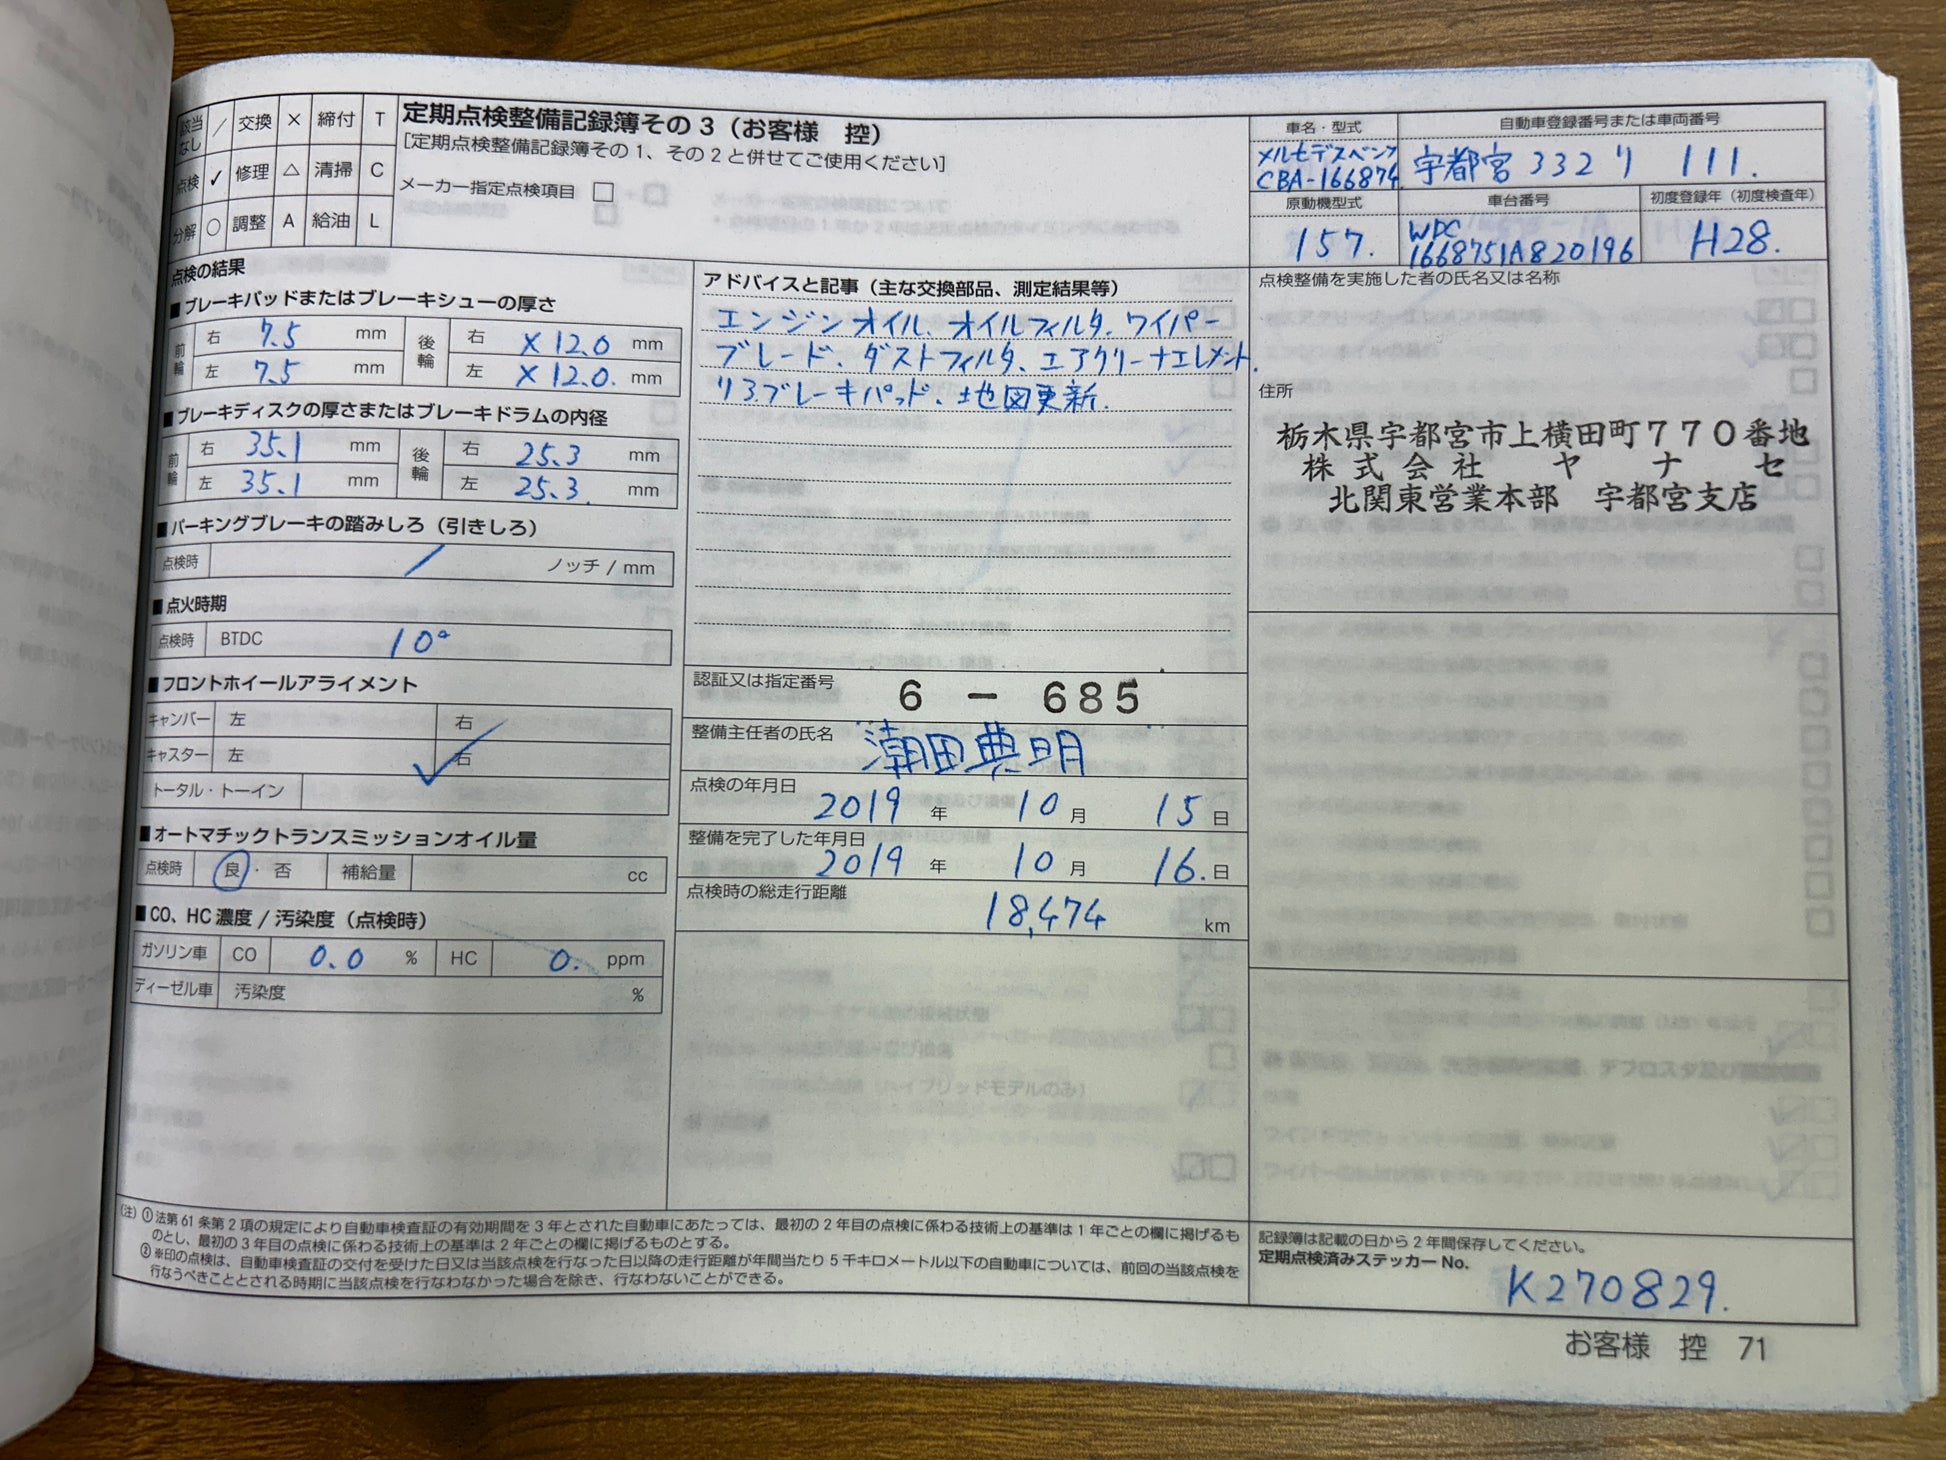 該当なし ／ 交換 × 締付 T
点検 ✓ 修理 △ 清掃 C
分解 ○ 調整 A 給油 L
定期点検整備記録簿その3（お客様　控）
［定期点検整備記録簿その1、その2と併せてご使用ください］
メーカー指定点検項目 □
車名・型式
メルセデスベンツ
CBA-166874
自動車登録番号または車両番号
宇都宮 332 リ 111.
原動機型式
157.
車台番号
WDC
1668751A820196
初度登録年（初度検査年）
H28.
点検の結果
■ブレーキパッドまたはブレーキシューの厚さ
前輪 右 7.5 mm 後輪 右 × 12.0 mm
左 7.5 mm 左 × 12.0. mm
■ブレーキディスクの厚さまたはブレーキドラムの内径
前輪 右 35.1 mm 後輪 右 25.3 mm
左 35.1 mm 左 25.3. mm
■パーキングブレーキの踏みしろ（引きしろ）
点検時 ／ ノッチ / mm
■点火時期
点検時 BTDC 10°
■フロントホイールアライメント
キャンバー 左 右
キャスター 左 右 ✓
トータル・トーイン
■オートマチックトランスミッションオイル量
点検時 良・否 補給量 cc
■CO、HC濃度 / 汚染度（点検時）
ガソリン車 CO 0.0 % HC 0. ppm
ディーゼル車 汚染度 %
アドバイスと記事（主な交換部品、測定結果等）
エンジンオイル、オイルフィルタ、ワイパー
ブレード、ダストフィルタ、エアクリーナエレメント.
リヤブレーキパッド、地図更新.
認証又は指定番号 6 － 685
整備主任者の氏名 潮田典明
点検の年月日
2019 年 10 月 15 日
整備を完了した年月日
2019 年 10 月 16. 日
点検時の総走行距離
18,474 km
点検整備を実施した者の氏名又は名称
住所
栃木県宇都宮市上横田町７７０番地
株式会社　ヤナセ
北関東営業本部　宇都宮支店
（注）①法第61条第2項の規定により自動車検査証の有効期間を3年とされた自動車にあたっては、最初の2年目の点検に係わる技術上の基準は1年ごとの欄に掲げるも
のとし、最初の3年目の点検に係わる技術上の基準は2年ごとの欄に掲げるものとする。
②※印の点検は、自動車検査証の交付を受けた日又は当該点検を行なった日以降の走行距離が年間当たり5千キロメートル以下の自動車については、前回の当該点検を
行なうべきこととされる時期に当該点検を行なわなかった場合を除き、行なわないことができる。
記録簿は記載の日から2年間保存してください。
定期点検済みステッカー No.
K270829.
お客様　控　71